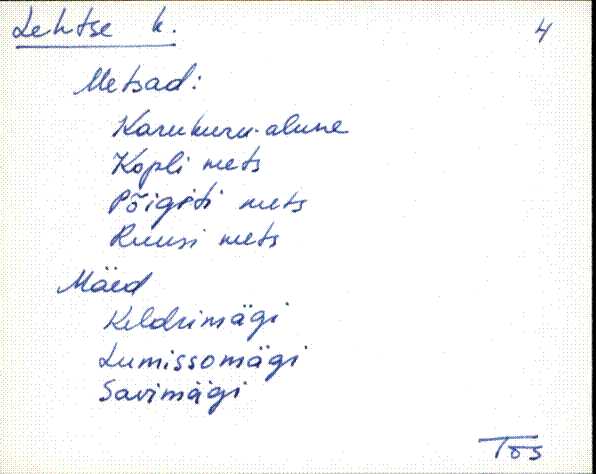 Lehtse k.
4
Metsad:
Karukuru-alune
Kopli mets
Põigiti mets
Ruusi mets
Mäed
Keldrimägi
Lumissomägi
Savimägi
Tos